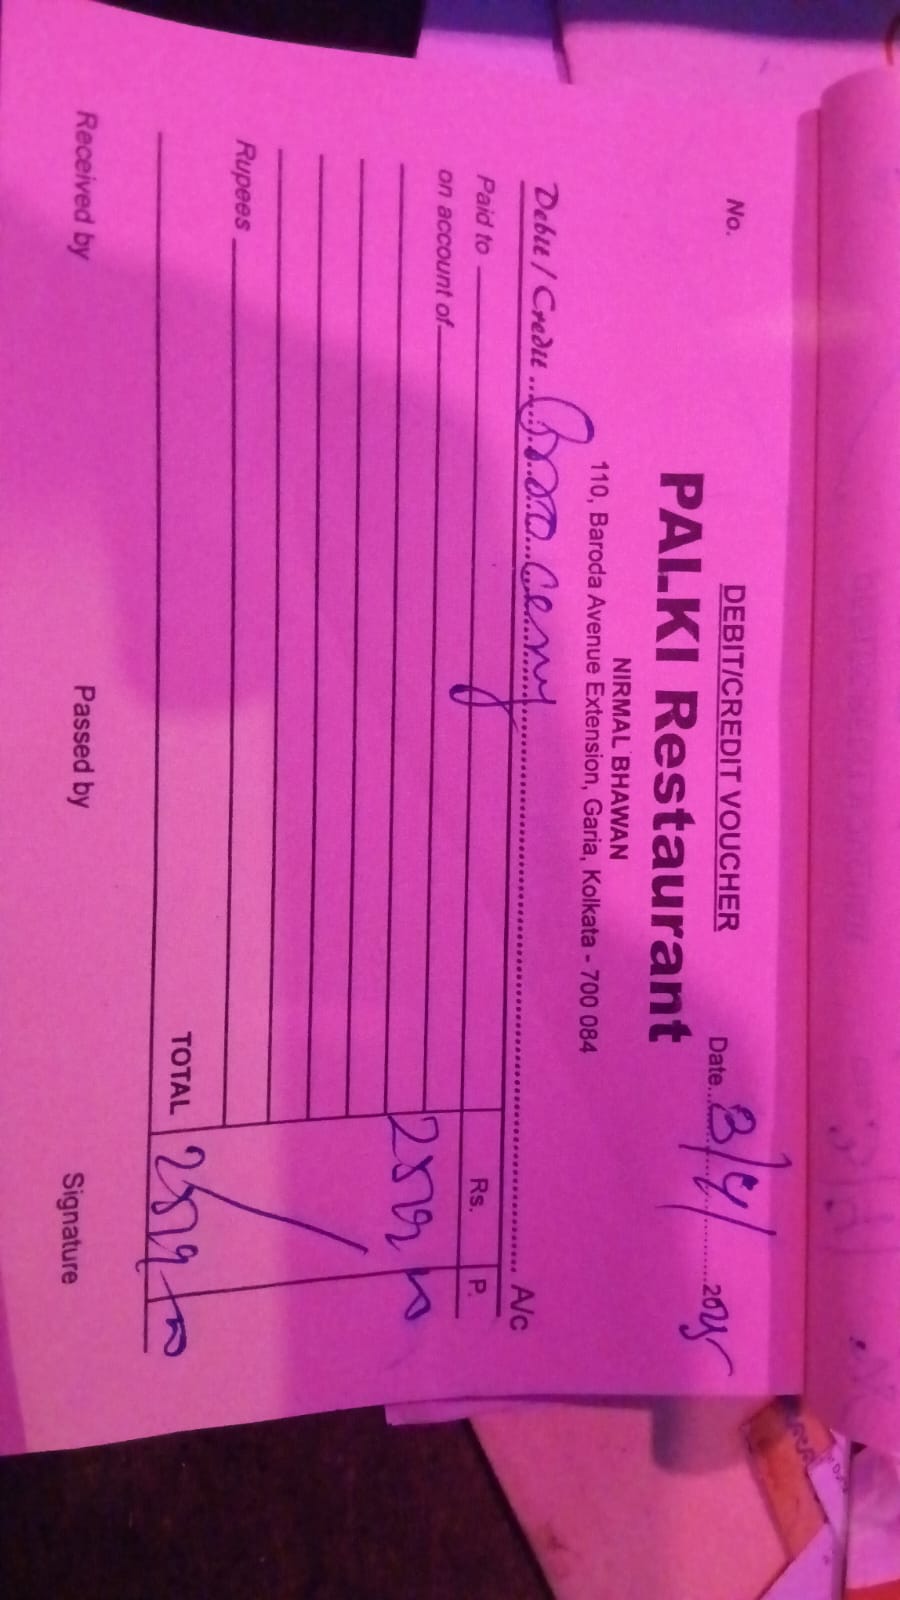 DEBIT/CREDIT VOUCHER
No.
Date 3/4/ 2025
PALKI Restaurant
NIRMAL BHAWAN
110, Baroda Avenue Extension, Garia, Kolkata - 700 084
Debit / Credit A/c
Paid to Rs. P.
on account of
Rupees
TOTAL
Received by Passed by Signature